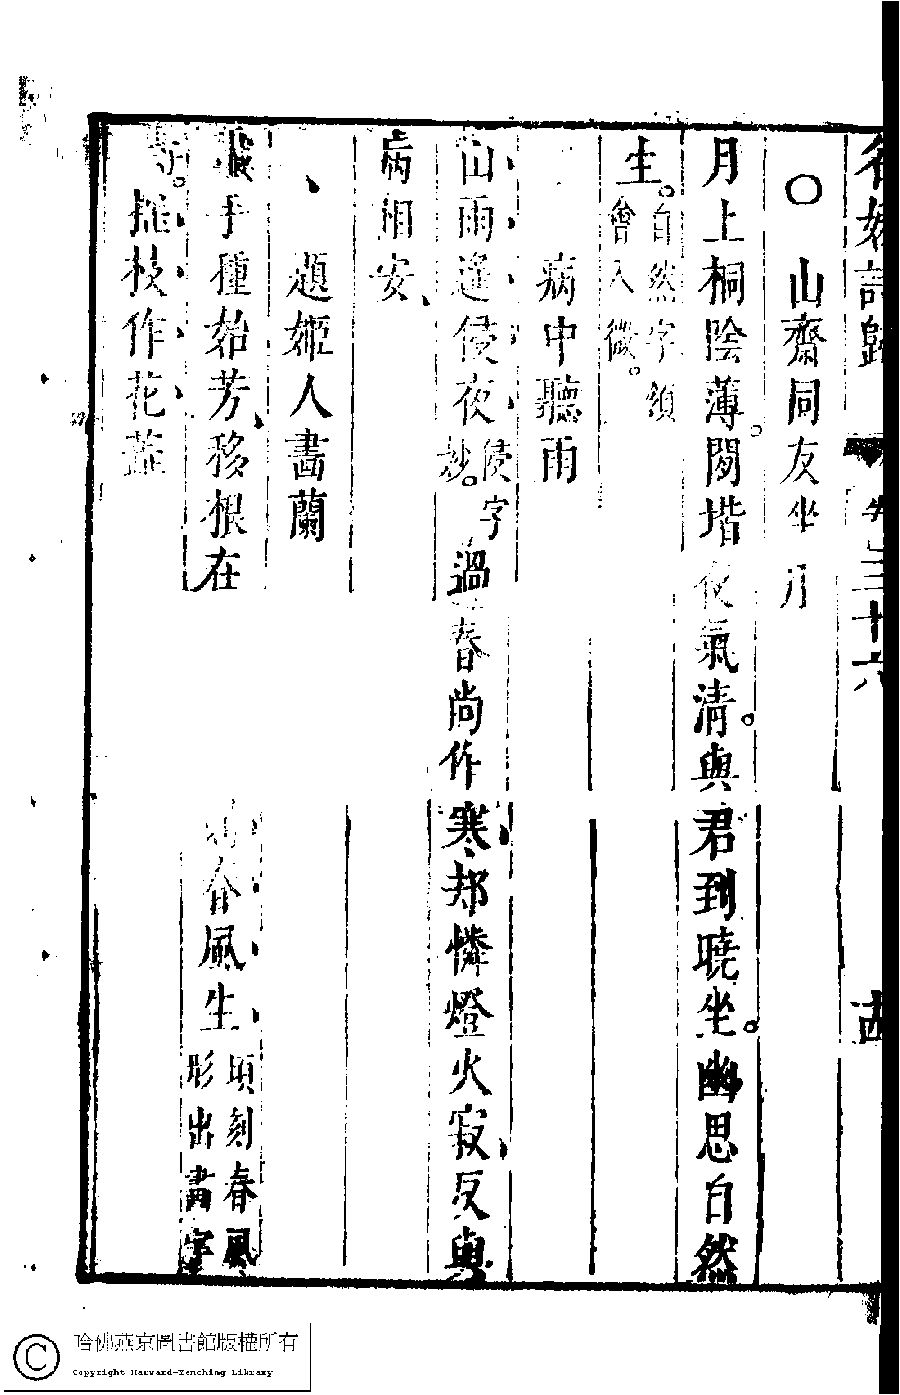 名媛詩歸 卷三十六
○山齋同友坐月
月上桐陰薄閑堦夜氣清。與君到曉坐。幽思自然
生。自然字領會入微。
病中聽雨
山雨遙侵夜侵字妙。過春尚作寒却憐燈火寂反與
病相安
題姬人畫蘭
手種始芳移根在 春風生頃刻春風形出畫字
枝作花蕋
哈佛燕京圖書館版權所有
Copyright Harvard-Yenching Library